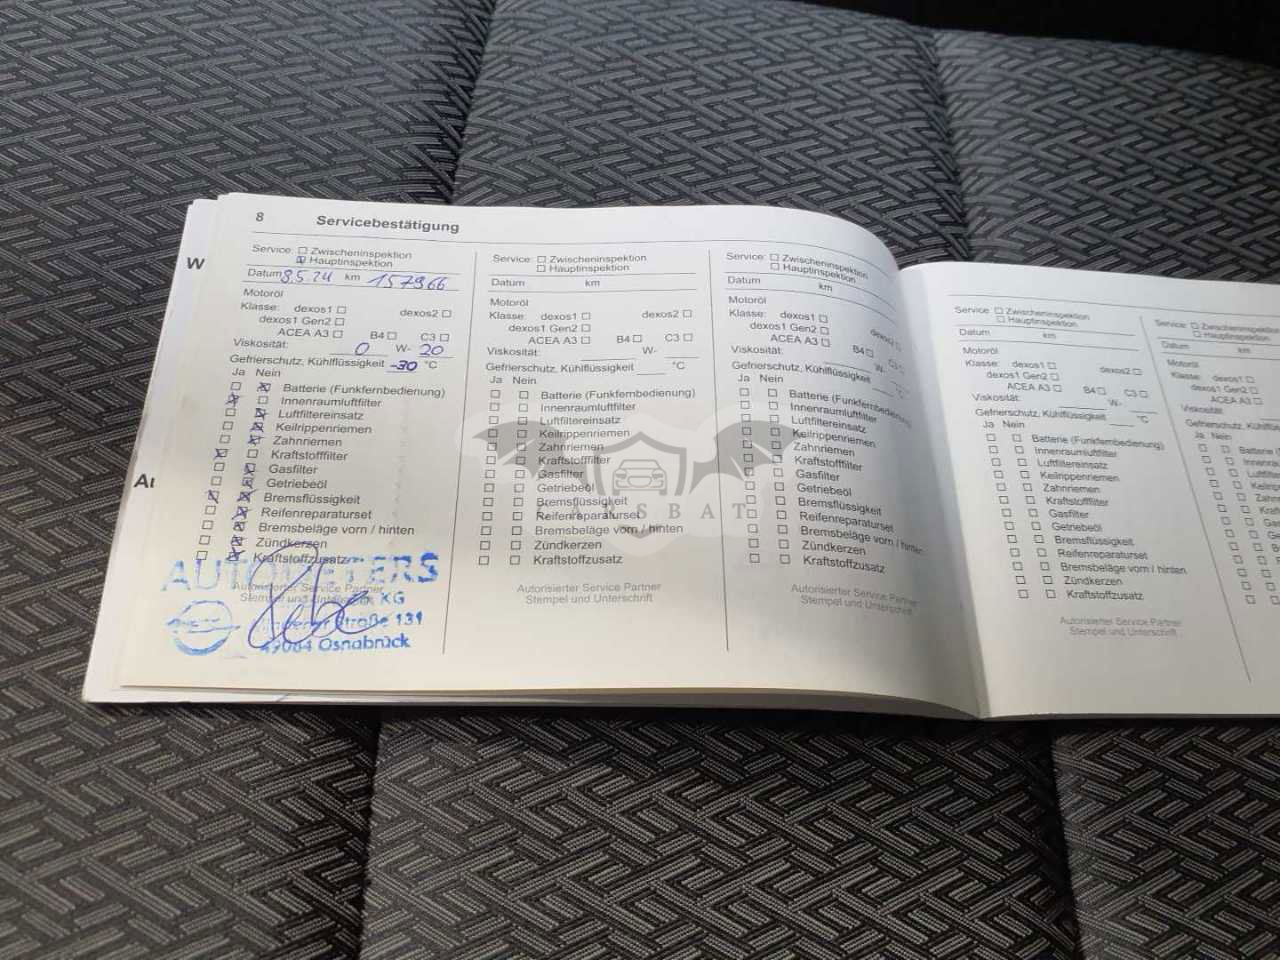 8 Servicebestätigung
Service: Zwischeninspektion
Hauptinspektion
Datum 8.5.24 km 157966
Motoröl
Klasse: dexos1 dexos2
dexos1 Gen2
ACEA A3 B4 C3
Viskosität: 0 W- 20
Gefrierschutz, Kühlflüssigkeit -30 °C
Ja Nein
Batterie (Funkfernbedienung)
Innenraumluftfilter
Luftfiltereinsatz
Keilrippenriemen
Zahnriemen
Kraftstofffilter
Gasfilter
Getriebeöl
Bremsflüssigkeit
Reifenreparaturset
Bremsbeläge vorn / hinten
Zündkerzen
Kraftstoffzusatz
AUTO PETERS
Autorisierter Service Partner
Stempel und Unterschrift
KG
Straße 131
49084 Osnabrück
Service: Zwischeninspektion
Hauptinspektion
Datum km
Motoröl
Klasse: dexos1 dexos2
dexos1 Gen2
ACEA A3 B4 C3
Viskosität: W-
Gefrierschutz, Kühlflüssigkeit °C
Ja Nein
Batterie (Funkfernbedienung)
Innenraumluftfilter
Luftfiltereinsatz
Keilrippenriemen
Zahnriemen
Kraftstofffilter
Gasfilter
Getriebeöl
Bremsflüssigkeit
Reifenreparaturset
Bremsbeläge vorn / hinten
Zündkerzen
Kraftstoffzusatz
Autorisierter Service Partner
Stempel und Unterschrift
Service: Zwischeninspektion
Hauptinspektion
Datum km
Motoröl
Klasse: dexos1 dexos2
dexos1 Gen2
ACEA A3 B4 C3
Viskosität: W-
Gefrierschutz, Kühlflüssigkeit °C
Ja Nein
Batterie (Funkfernbedienung)
Innenraumluftfilter
Luftfiltereinsatz
Keilrippenriemen
Zahnriemen
Kraftstofffilter
Gasfilter
Getriebeöl
Bremsflüssigkeit
Reifenreparaturset
Bremsbeläge vorn / hinten
Zündkerzen
Kraftstoffzusatz
Autorisierter Service Partner
Stempel und Unterschrift
Service: Zwischeninspektion
Hauptinspektion
Datum km
Motoröl
Klasse: dexos1 dexos2
dexos1 Gen2
ACEA A3 B4 C3
Viskosität: W-
Gefrierschutz, Kühlflüssigkeit °C
Ja Nein
Batterie (Funkfernbedienung)
Innenraumluftfilter
Luftfiltereinsatz
Keilrippenriemen
Zahnriemen
Kraftstofffilter
Gasfilter
Getriebeöl
Bremsflüssigkeit
Reifenreparaturset
Bremsbeläge vorn / hinten
Zündkerzen
Kraftstoffzusatz
Autorisierter Service Partner
Stempel und Unterschrift
Service: Zwischeninspektion
Hauptinspektion
Datum km
Motoröl
Klasse: dexos1
dexos1 Gen2
ACEA A3
Viskosität:
Gefrierschutz, Kühlflüssigkeit
Ja Nein
CARSBAT